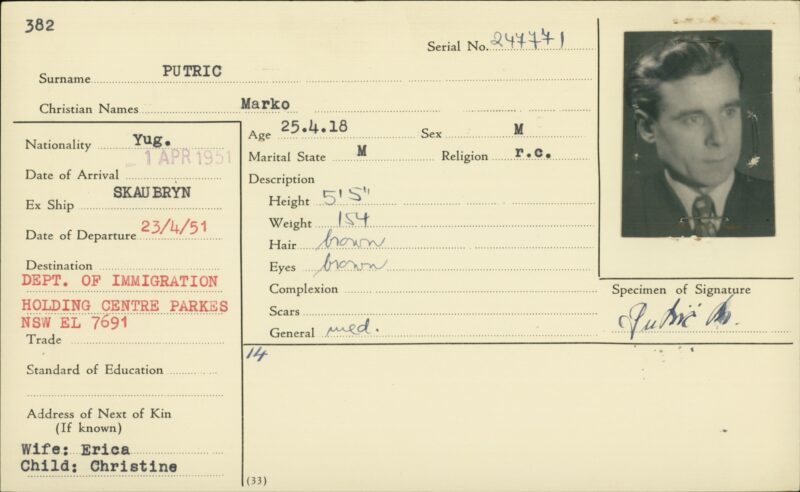 382
Serial No. 247771
Surname PUTRIC
Christian Names Marko
Nationality Yug.
Date of Arrival 1 APR 1951
Ex Ship SKAUBRYN
Date of Departure 23/4/51
Destination
DEPT. OF IMMIGRATION
HOLDING CENTRE PARKES
NSW EL 7691
Trade
Standard of Education
Address of Next of Kin
(If known)
Wife: Erica
Child: Christine
Age 25.4.18 Sex M
Marital State M Religion r.c.
Description
Height 5'5"
Weight 154
Hair brown
Eyes brown
Complexion
Scars
General med.
14
(33)
Specimen of Signature
Putrić M.